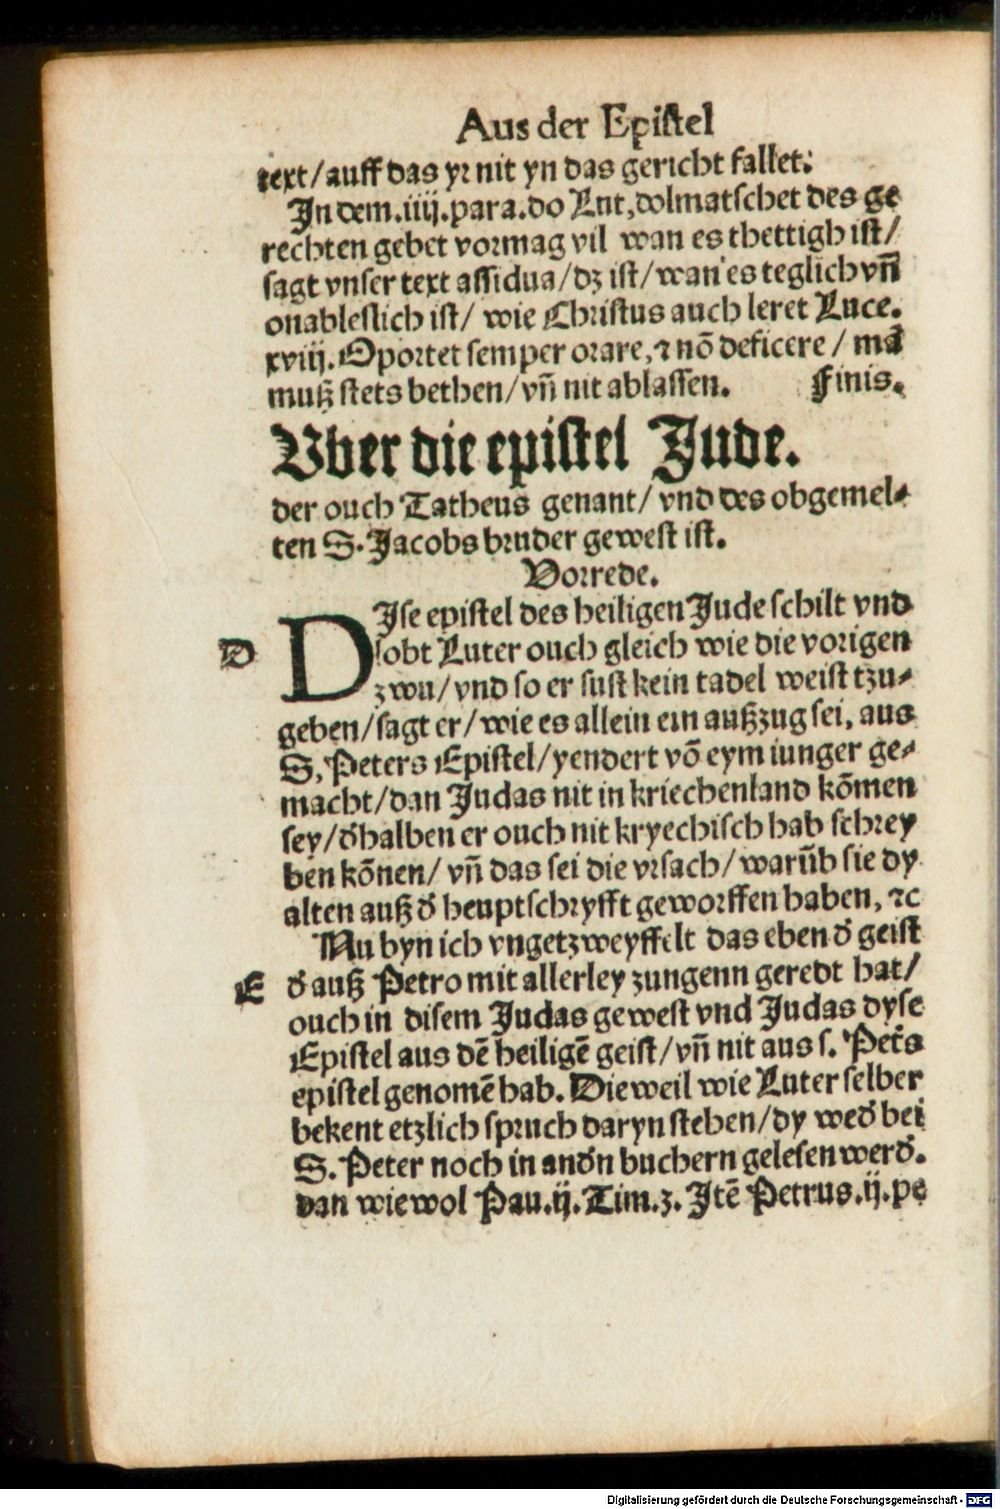 Aus der Epistel
text/auff das yr nit yn das gericht fallet.
In dem.iiij.para.do Lut,dolmatschet des ge
rechten gebet vormag vil wan es thettigh ist/
sagt vnser text assidua/dz ist/wan es teglich vn̄
onableslich ist/ wie Christus auch leret Luce.
xviij. Oportet semper orare,⁊ nō deficere / mā
muß stets bethen/vn̄ nit ablassen. Finis.
Vber die epistel Jude.
der ouch Tatheus genant/ vnd des obgemel-
ten S. Jacobs bruder gewest ist.
Vorrede.
DIse epistel des heiligen Jude schilt vnd
D lobt Luter ouch gleich wie die vorigen
zwu/vnd so er sust kein tadel weist tzu-
geben/sagt er/wie es allein ein außzug sei, aus
S. Peters Epistel/yendert vō eym iunger ge-
macht/dan Judas nit in kriechenland kōmen
sey/dʼhalben er ouch nit kryechisch hab schrey
ben kōnen/ vn̄ das sei die vrsach/ warūb sie dy
alten auß dʼ heuptschrysft geworffen haben, ⁊c
Nu byn ich vngetzweyffelt das eben dʼ geist
E dʼ auß Petro mit allerley zungenn geredt hat/
ouch in disem Judas gewest vnd Judas dyse
Epistel aus dē heiligē geist/vn̄ nit aus s. Pet́s
epistel genomē hab. Die weil wie Luter selber
bekent etzlich spruch daryn stehen/dy wedʼ bei
S. Peter noch in andʼn buchern gelesen werdʼ.
dan wiewol Pau.ij. Tim.3. Itē Petrus.ij.pe
Digitalisierung gefördert durch die Deutsche Forschungsgemeinschaft - DFG